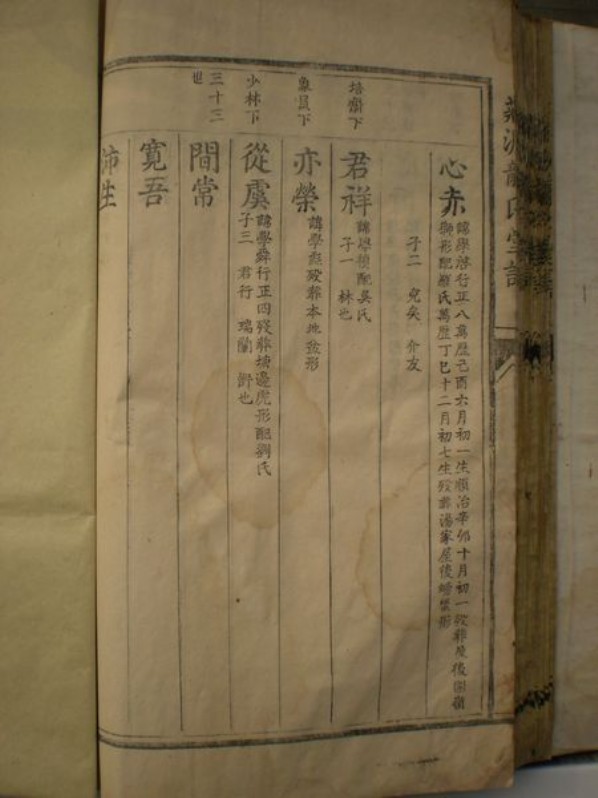 心赤
諱學啓行正八萬歷己酉六月初一生順冶辛卯十月初一歿葬 後園嶺
獅形配 氏萬歷丁巳十二月初七生歿葬湯家屋後蟠 形
子二 兒矣 介友
培齋下
君祥
諱學禎配吳氏
子一 林也
象賢下
亦榮
諱學 歿葬本地盆形
少林下
從虞
諱學舜行正四歿葬塘邊虎形配劉氏
子三 君行 瑞蘭 野也
三十三
世
間常
寬吾
沛生